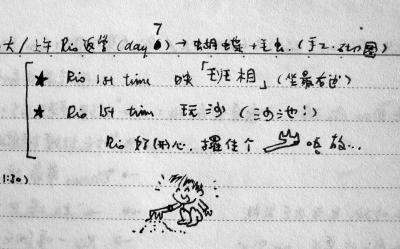 大/上午 Rio 返學 (day 7) → 蝴蝶 + 毛虫. (手工.
★ Rio 1st time 映「班相」(坐最右边)
★ Rio 1st time 玩沙 (沙池!)
Rio 好開心, 攞住个 唔放...
1:30)